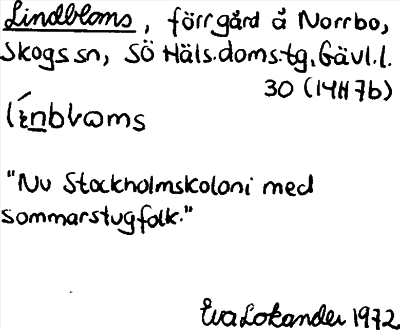 Lindbloms, förr gård å Norrbo,
Skogs sn, SÖ Häls.doms.tg, Gävl.l.
30 (14H 7b)
línbloms
"Nu Stockholmskoloni med
sommarstugfolk."
Eva Lokander 1972